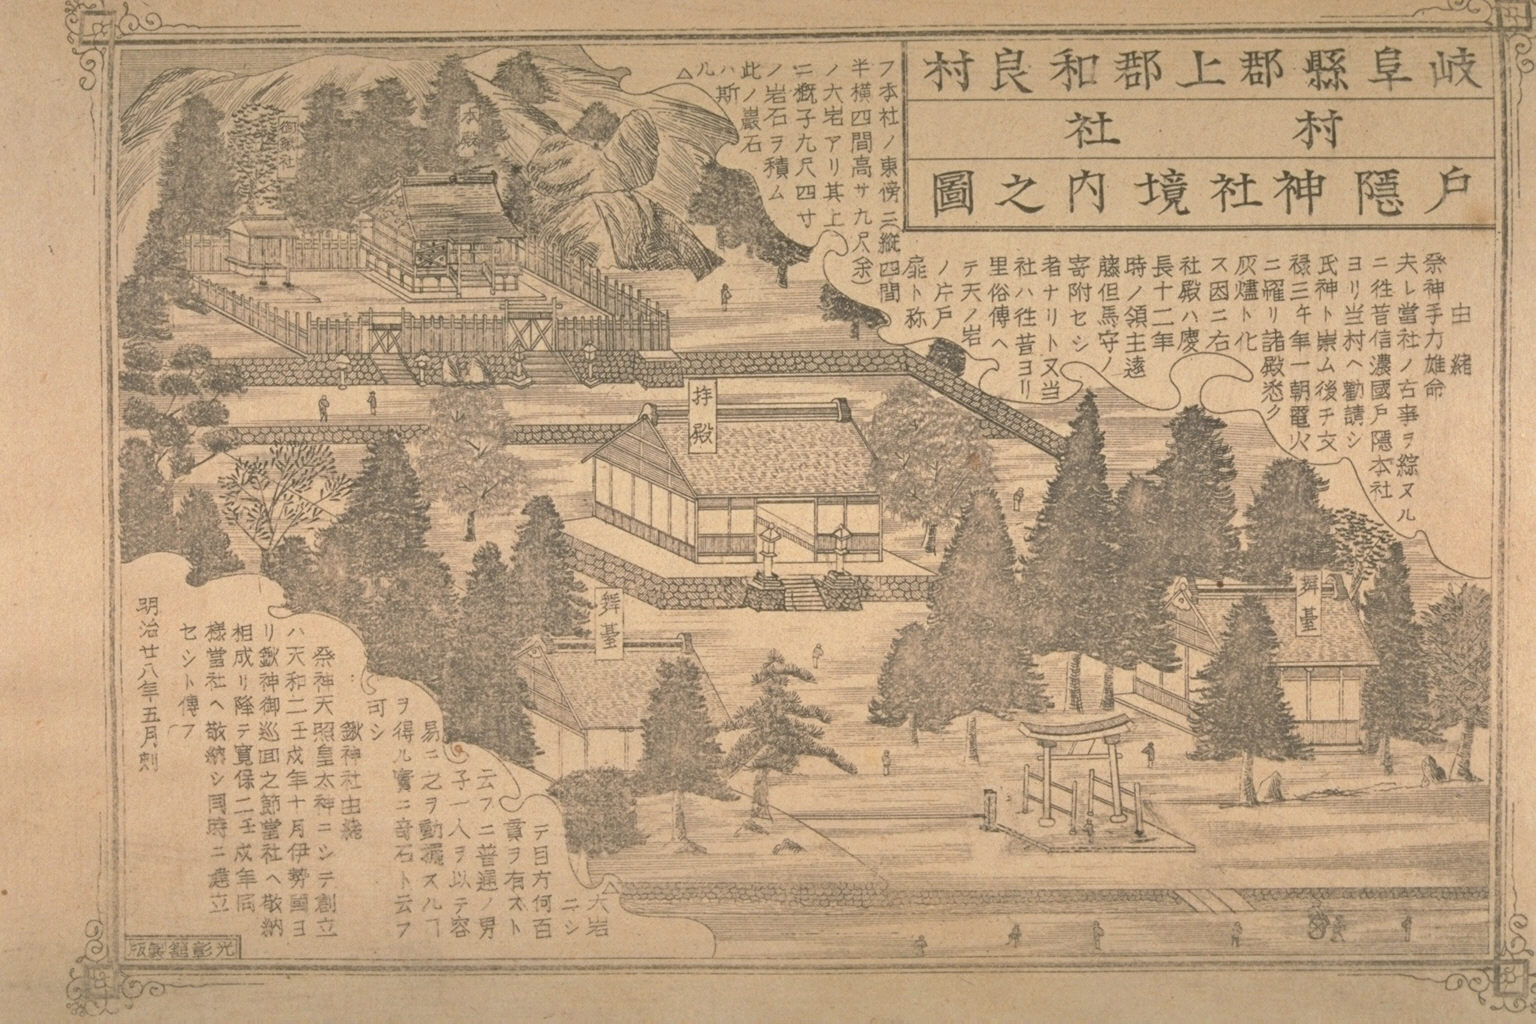 岐阜縣郡上郡和良村
村社
戸隱神社境内之圖
由緒
祭神手力雄命
夫レ當社ノ古事ヲ綜ヌル
ニ徃昔信濃國戸隱本社
ヨリ当村ヘ勸請シ
氏神ト崇ム後チ文
禄三午年一朝電火
ニ罹リ諸殿悉ク
灰燼ト化
ス因ニ右
社殿ハ慶
長十二年
時ノ領主遠
藤但馬守ノ
寄附セシ
者ナリト又当
社ハ徃昔ヨリ
里俗傳ヘ
テ天ノ岩
ノ片戸
扉ト称
フ本社ノ東傍ニ縦四間
半横四間高サ九尺余
ノ大岩アリ其上
ニ概子九尺四寸
ノ岩石ヲ積ム
此ノ巖石
ハ斯
ル△
本殿
御鍬社
拝殿
舞臺
舞臺
△大岩
ニシ
テ目方何百
貫ヲ有スト
云フニ普通ノ男
子一人ヲ以テ容
易ニ之ヲ動搖スルヿ
ヲ得ル實ニ奇石ト云フ
可シ
鍬神社由緒
祭神天照皇太神ニシテ創立
ハ天和二壬戌年十月伊勢國ヨ
リ鍬神御巡回之節當社ヘ敬納
相成リ降テ寛保二壬戌年同
様當社ヘ敬納シ同時ニ建立
セシト傳フ
明治廿八年五月刻
光彰館製版